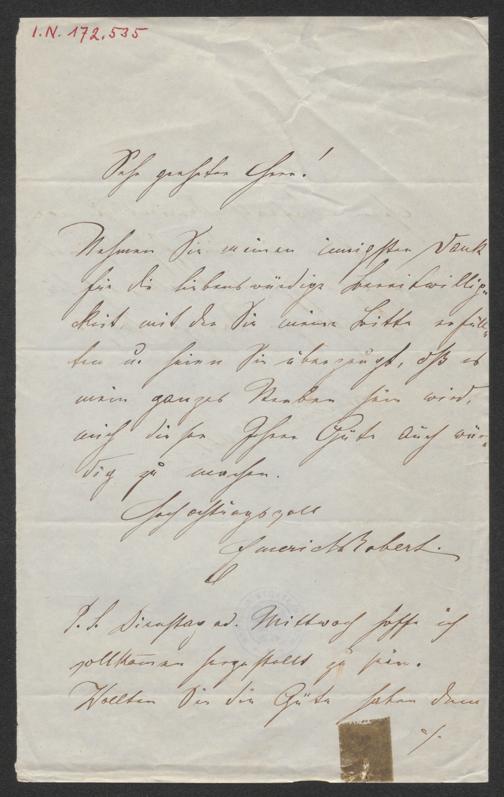 I.N. 172.535
Sehr geehrter Herr!
Nehmen Sie meinen innigsten Dank
für die liebenswürdige Bereitwillig-
keit, mit der Sie meine Bitte erfüll-
ten u. seien Sie überzeugt, dß es
mein ganzes Streben sein wird,
mich dieser Ihrer Güte auch wür-
dig zu machen.
Hochachtungsvoll
Emerich Robert.
P. S. Dienstag od. Mittwoch hoffe ich
vollkommen hergestellt zu sein.
Wollten Sie die Güte haben dem
./.